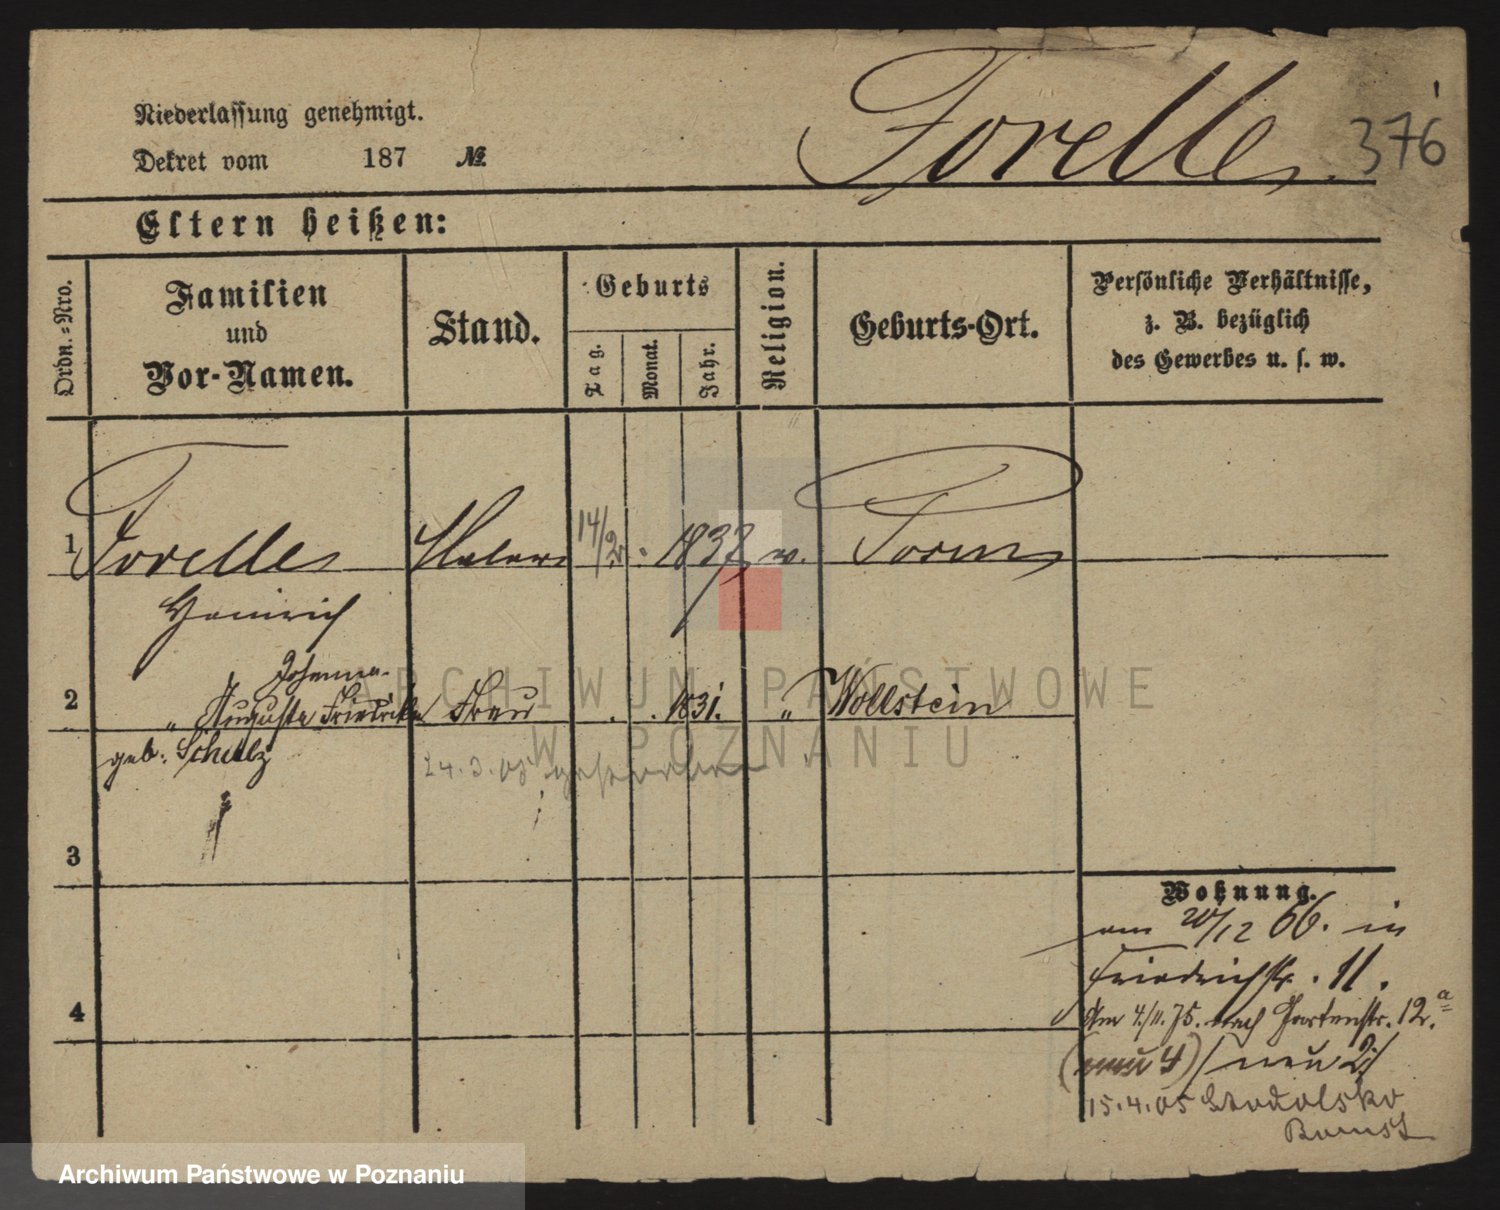 Niederlassung genehmigt.
Dekret vom 187 №.
Forelle.
376
Eltern heißen:
Ordn.=Nro.
Familien
und
Vor-Namen.
Stand.
Geburts
Tag.
Monat.
Jahr.
Religion.
Geburts-Ort.
Persönliche Verhältnisse,
z. B. bezüglich
des Gewerbes u. s. w.
1 Forelle Maler 14/2 1837
Heinrich
Johanna
2 " Auguste Friedrike Frau 1831. " Wollstein
geb. Schulz
24.3.05 gestorben
3
Wohnung.
am 20/12 66. in
Friedrichstr. 11.
4
Am 4./11.75. nach Gartenstr. 12.a
(neu 4) / neu 2/
15.4.05
Bomst
ARCHIWUM PAŃSTWOWE
W POZNANIU
Archiwum Państwowe w Poznaniu